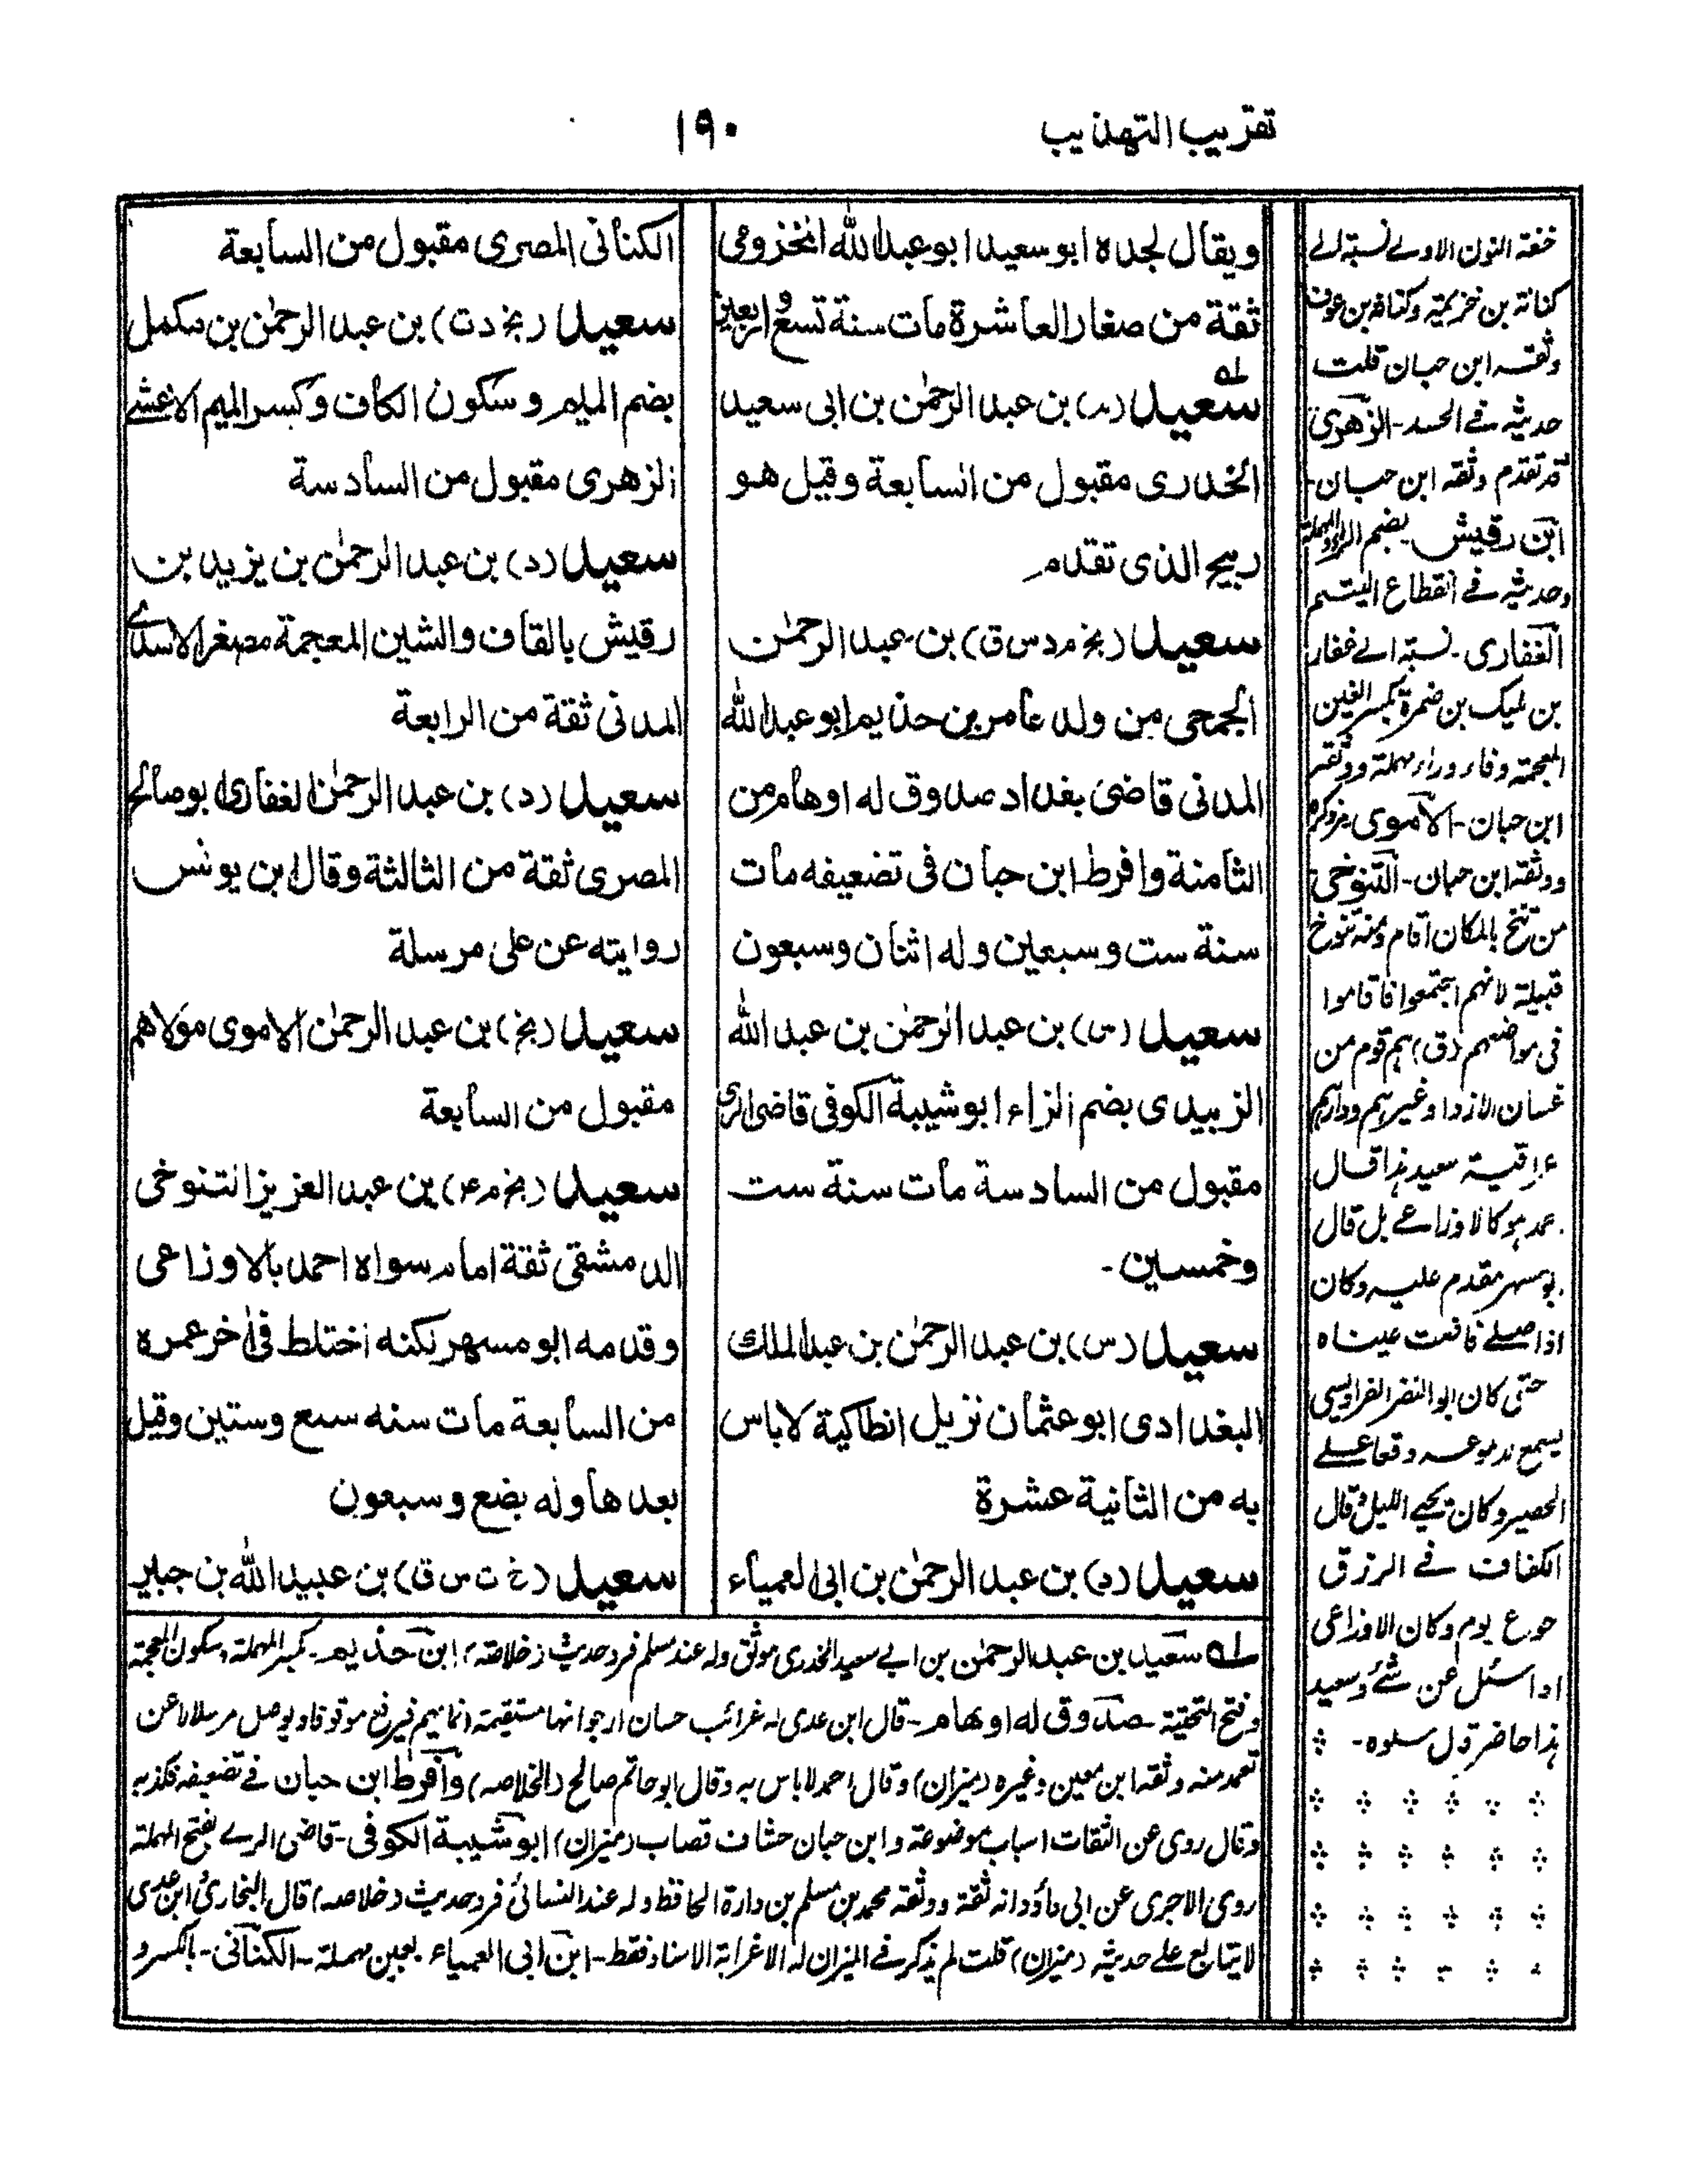 تقريب التهذيب
١٩٠
ويقال لجده ابو سعيد ابو عبد الله المخزومى
ثقة من صغار العاشرة مات سنة تسع و اربعين
سعيد (م) بن عبد الرحمٰن بن ابى سعيد
الخدرى مقبول من السابعة وقيل هو
ربيح الذى تقدم
سعيد (بخ م د س ق) بن عبد الرحمٰن
الجمحى من ولد عامر بن حذيم ابو عبد الله
المدنى قاضى بغداد صدوق له اوهام من
الثامنة وافرط ابن حبان فى تضعيفه مات
سنة ست وسبعين وله اثنان وسبعون
سعيد (س) بن عبد الرحمٰن بن عبد الله
الزبيدى بضم الزاء ابو شيبة الكوفى قاضى الرى
مقبول من السادسة مات سنة ست
وخمسين -
سعيد (س) بن عبد الرحمٰن بن عبد الملك
البغدادى ابو عثمان نزيل انطاكية لا باس
به من الثانية عشرة
سعيد (د) بن عبد الرحمٰن بن ابى العمياء
الكنانى المصرى مقبول من السابعة
سعيد (بخ د ت) بن عبد الرحمٰن بن مكمل
بضم الميم وسكون الكاف وكسر الميم الاعشے
الزهرى مقبول من السادسة
سعيد (د) بن عبد الرحمٰن بن يزيد بن
رقيش بالقاف والشين المعجمة مصغر الاسدى
المدنى ثقة من الرابعة
سعيد (د) بن عبد الرحمٰن الغفارى ابو صالح
المصرى ثقة من الثالثة وقال ابن يونس
روايته عن على مرسلة
سعيد (بخ) بن عبد الرحمٰن الاموى مولاهم
مقبول من السابعة
سعيد (بخ م ٤) بن عبد العزيز التنوخى
الدمشقى ثقة امام سواه احمد بالاوزاعى
وقدمه ابو مسهر لكنه اختلط فى اٰخر عمره
من السابعة مات سنه سبع وستين وقيل
بعدها وله بضع وسبعون
سعيد (خ ت س ق) بن عبيد الله بن جبير
له سعيد بن عبد الرحمٰن بن ابي سعيد الخدرى موثق وله عند مسلم فرد حديث (خلاصه) ابن حذيم - بكسر المهملة وسكون المعجمة
وفتح التحتية - صدوق له اوهام - قال ابن عدى له غرائب حسان ارجو انها مستقيمة انما يهم فيرفع موقوفا ويوصل مرسلا لا عن
تعمد منه وثقه ابن معين وغيره (ميزان) وقال احمد لا باس به وقال ابو حاتم صالح (الخلاصه) وافرط ابن حبان فے تضعيفه فكذبه
وقال روى عن الثقات اسباب موضوعة وابن حبان قصاب (ميزان) ابو شيبة الكوفى - قاضى الرے بفتح المهملة
روى الاجرى عن ابى داؤد انه ثقة ووثقه محمد بن مسلم بن دارة الحافظ وله عند النسائى فرد حديث (خلاصه) قال البخارى ابن عدى
لا يتابع علے حديثه (ميزان) قلت لم يذكر فے الميزان له الا غرابة الاسناد فقط - ابن ابى العمياء بعين مهملة - الكنانى - بالكسر و
خفة النون الاولے نسبة الے
كنانة بن خزيمة وكنانه بن عوف
وثقه ابن حبان قلت
حديثه فے الحسد - الزهرى
قد تقدم وثقه ابن حبان -
ابن رقيش - بضم الراء المهملة
وحديثه فے انقطاع اليتم
الغفارى - نسبة الے غفار
بن مليك بن ضمرة بكسر الغين
المعجمة وفاء وراء مهملة ووثقه
ابن حبان - الاموى
ووثقه ابن حبان - التنوخى
من تنخ بالمكان اقام ومنه تنوخ
قبيلة لانهم اجتمعوا فاقاموا
فى مواضعهم (ق) هم قوم من
غسان الازد او غيرهم ودارهم
عراقية سعيد هذا قال
احمد هو كالاوزاعے بل قال
ابو مسهر مقدم عليه وكان
اذا صلے فاضت عيناه
حتى كان ابو النضر الفراديسى
يسمع دموعه وقعا علے
الحصير وكان يحيے الليل وقال
الكفاف فے الرزق
جوع يوم وكان الاوزاعى
اذا سئل عن شئ وسعيد
هذا حاضر قال سلوه -